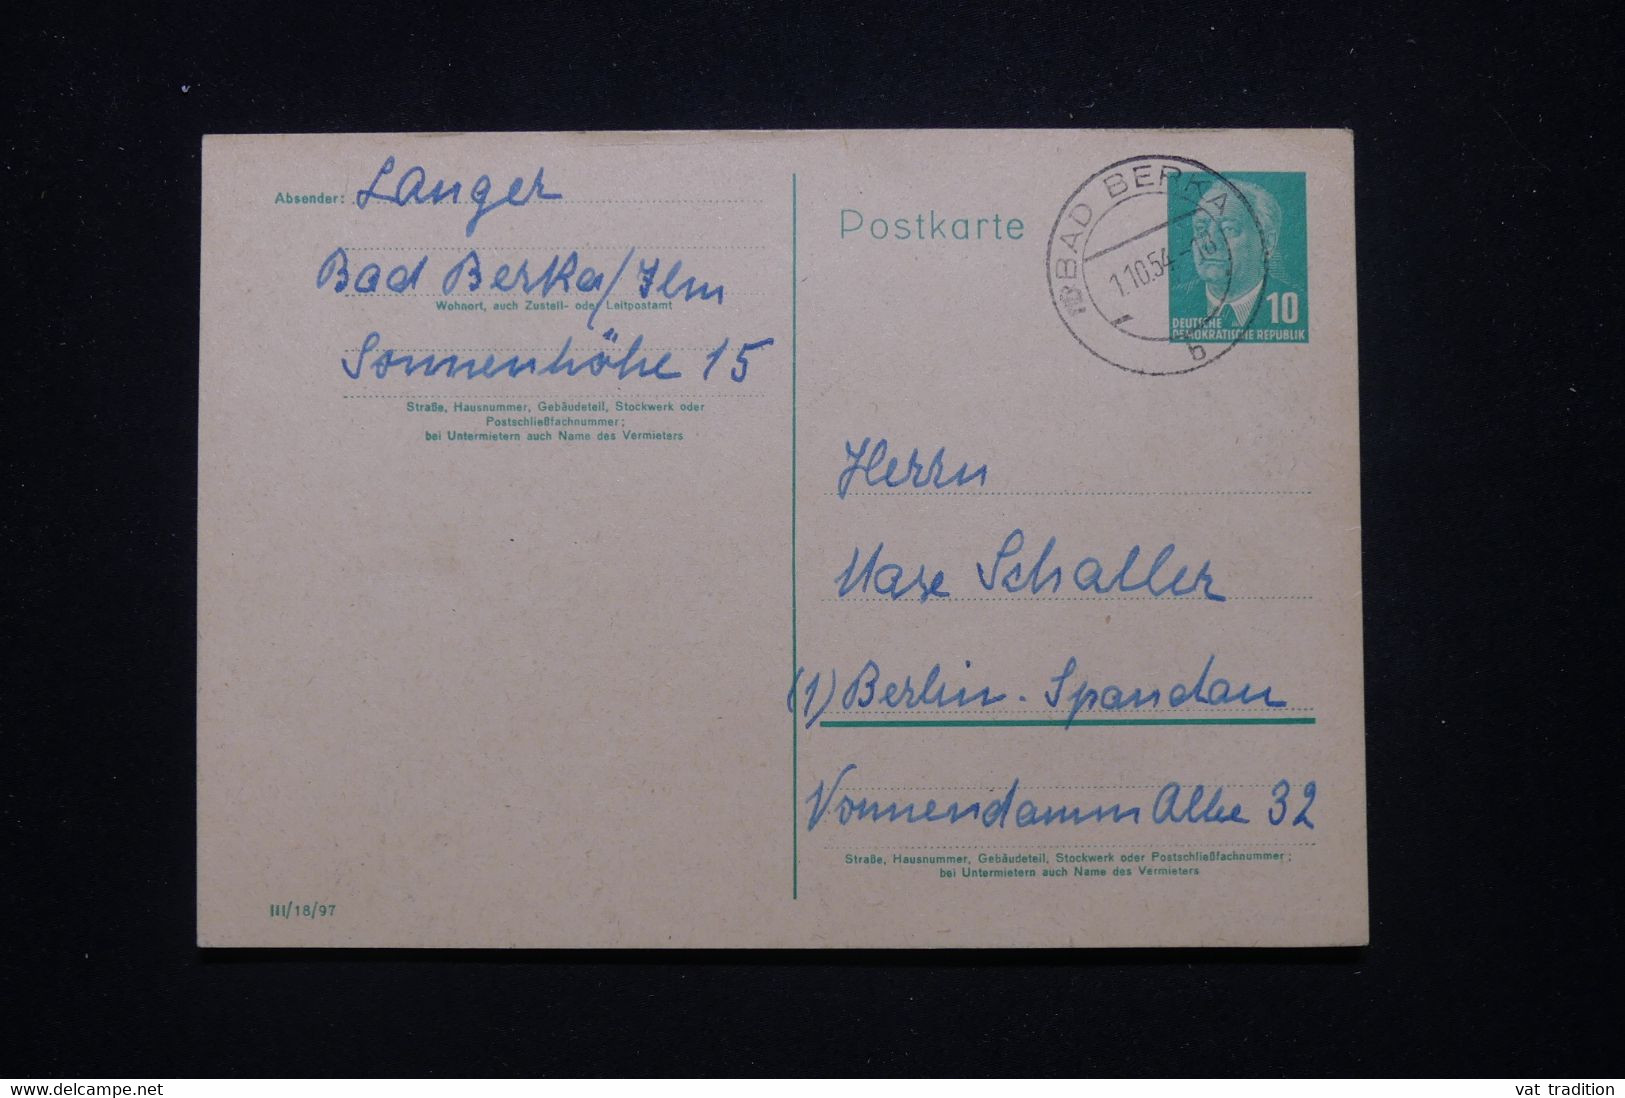 Absender: Langer
Bad Berka/Ilm
Wohnort, auch Zustell- oder Leitpostamt
Sonnenhöhe 15
Straße, Hausnummer, Gebäudeteil, Stockwerk oder
Postschließfachnummer;
bei Untermietern auch Name des Vermieters
III/18/97
Postkarte
BAD BERKA
1.10.54
b
10
DEUTSCHE
DEMOKRATISCHE REPUBLIK
Herrn
Max Schaller
(1) Berlin-Spandau
Nonnendamm Allee 32
Straße, Hausnummer, Gebäudeteil, Stockwerk oder Postschließfachnummer;
bei Untermietern auch Name des Vermieters
www.delcampe.net
vat_tradition